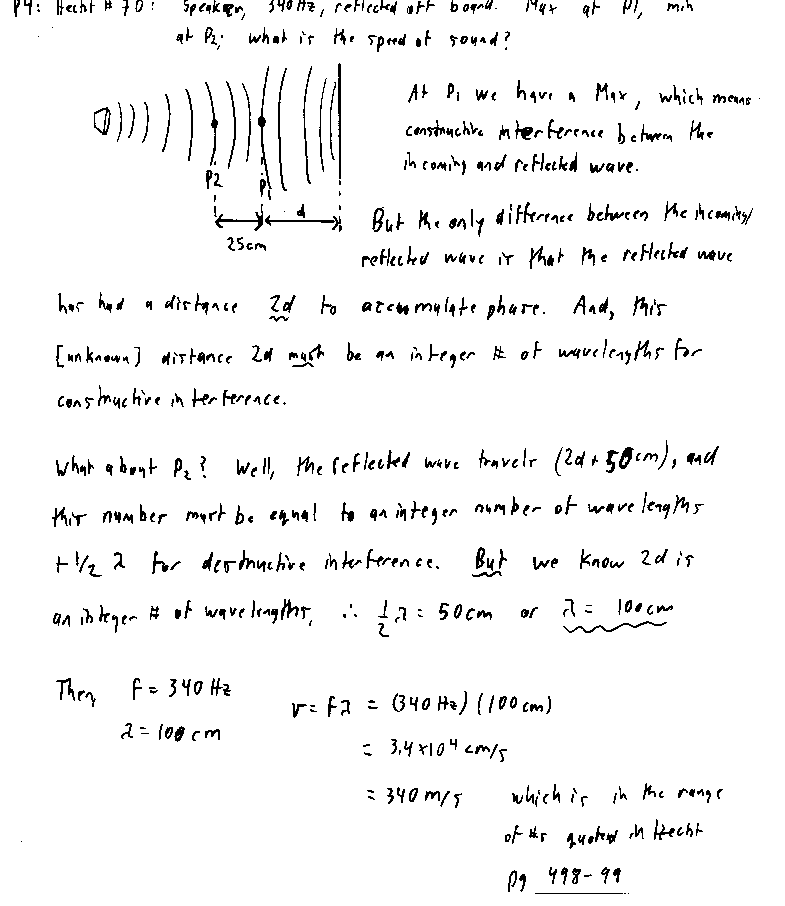 P4: Hecht # 70: Speaker, 340 Hz, reflected off board. Max at P1, min
at P2; what is the speed of sound?
At P1 we have a Max, which means
constructive interference between the
incoming and reflected wave.
P2
P1
d
25cm
But the only difference between the incoming/
reflected wave is that the reflected wave
has had a distance 2d to accumulate phase. And, this
[unknown] distance 2d must be an integer # of wavelengths for
constructive interference.
What about P2? Well, the reflected wave travels (2d + 50cm), and
this number must be equal to an integer number of wavelengths
+ 1/2 λ for destructive interference. But we know 2d is
an integer # of wavelengths, ∴ 1/2 λ = 50cm or λ = 100cm
Then f = 340 Hz
λ = 100 cm
v = fλ = (340 Hz)(100 cm)
= 3.4×10⁴ cm/s
= 340 m/s which is in the range
of #s quoted in Hecht
pg 498-99